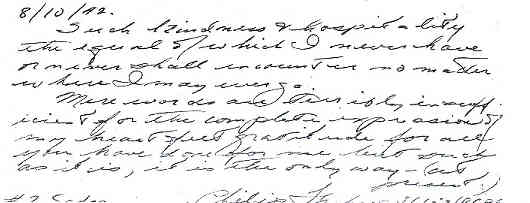 8/10/42.
Such kindness & hospitality
the equal of which I never have
or never shall encounter no matter
where I may ever go.
Mere words are terribly insuff
icient for the complete expression of
my heartfelt gratitude for all
you have done for me but such
as it is, it is the only way - (at
present.)
#2 Philip